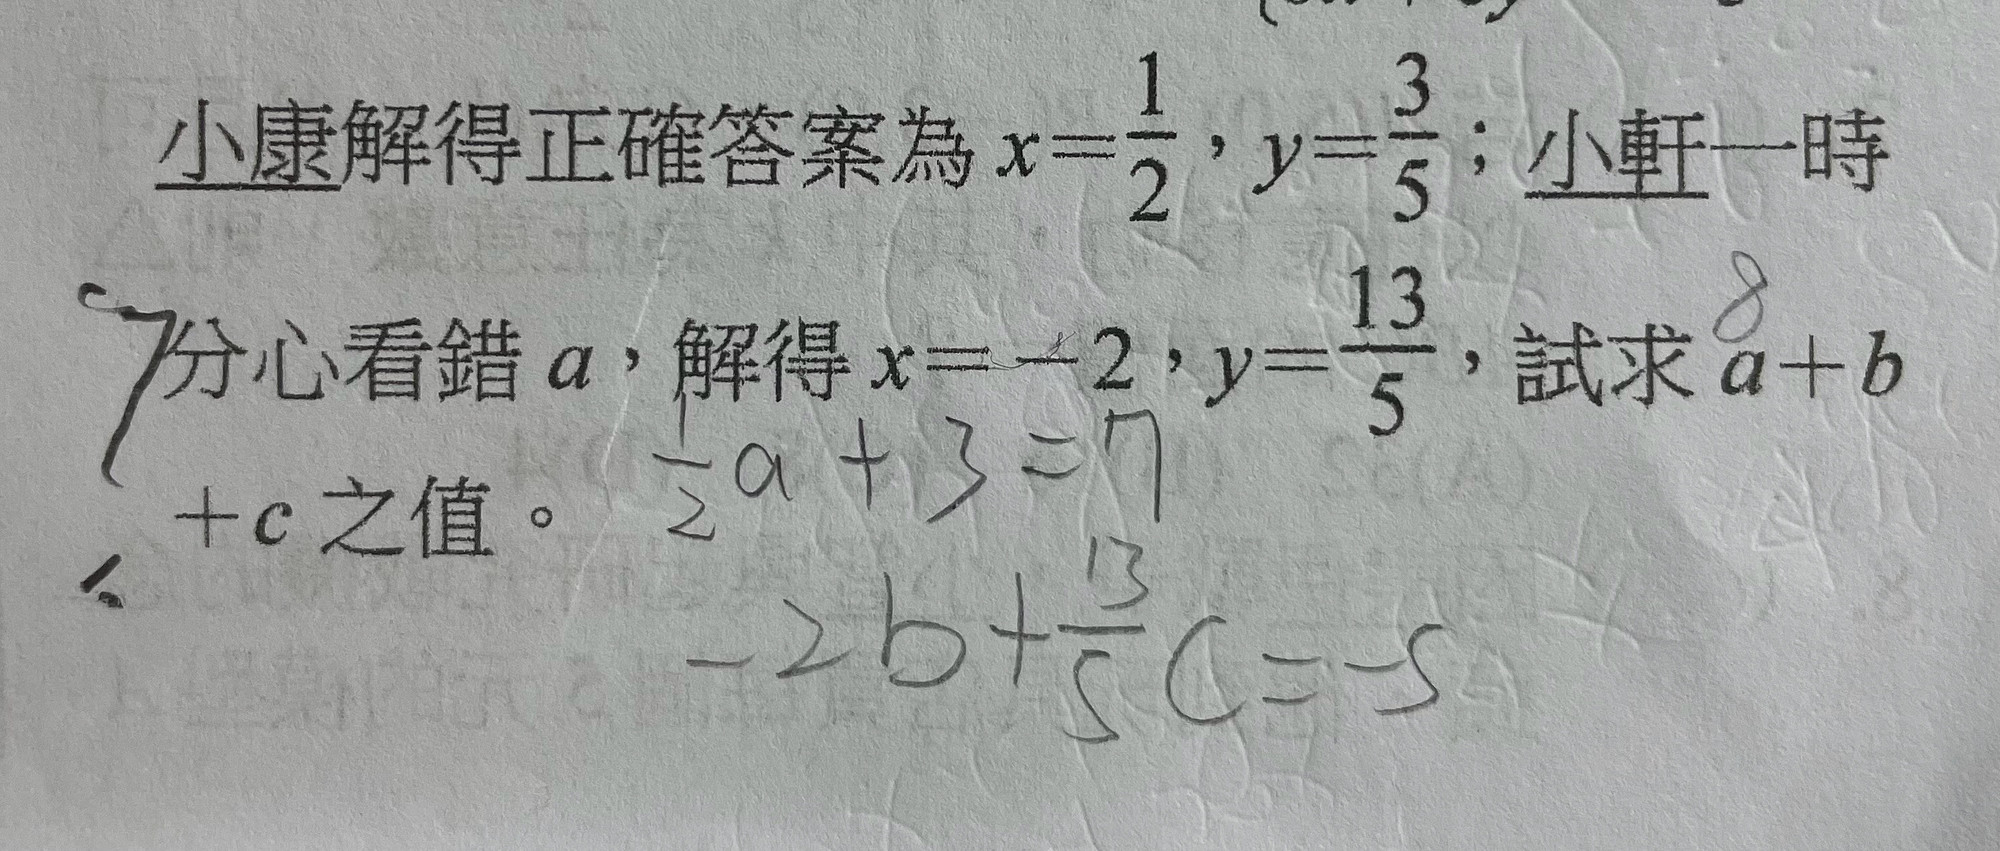 小康解得正確答案為 x=1/2，y=3/5；小軒一時
7分心看錯 a，解得 x=－2，y=13/5，試求 a+b
8
+c 之值。
1/2a+3=7
-2b+13/5c=-5